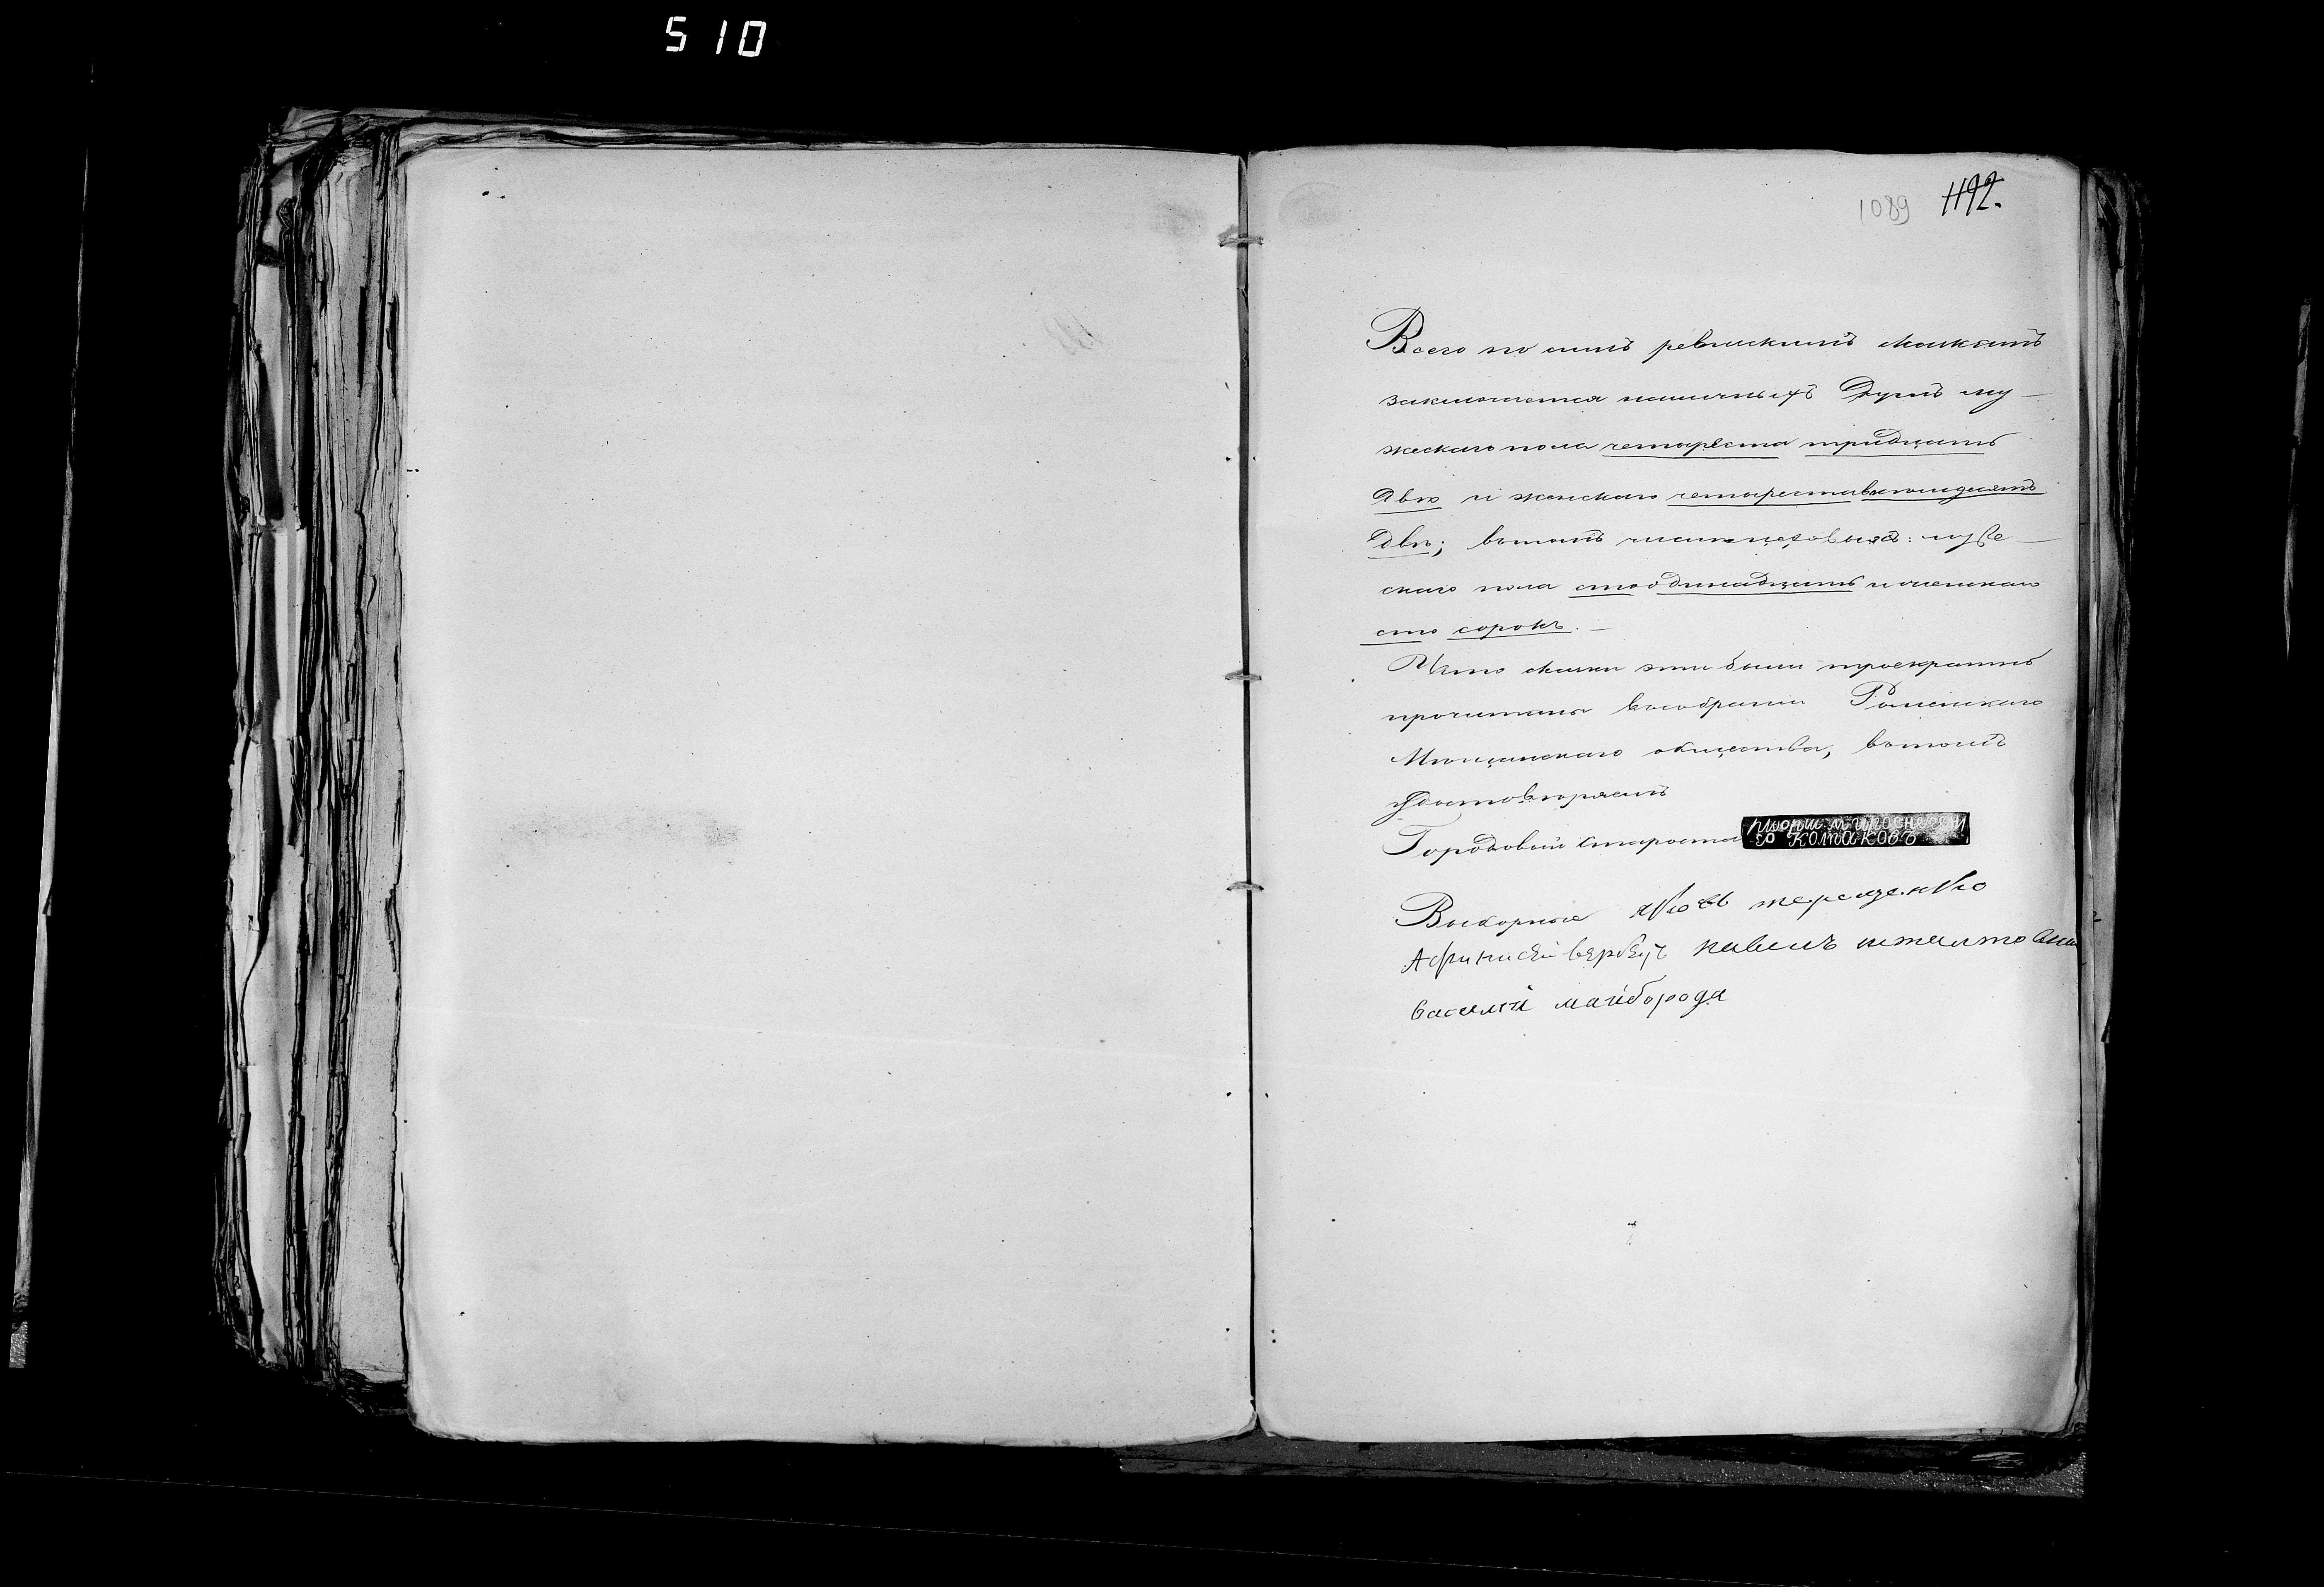 510
1089 1192.
Всего по симъ ревизскимъ сказкамъ
заключается наличныхъ Душъ му-
жескаго пола четыреста тридцать
двѣ и женскаго четыреста восемдесятъ
двѣ; въ томъ числѣ цеховыхъ: муже-
скаго пола сто одинадцать и женскаго
сто сорокъ. -
Что сказки эти были троекратно
прочитаны въ собраніи Роменскаго
Мѣщанскаго общества, въ томъ
удостовѣряемъ
Городовый Староста
Выборные яковъ терещенко
Афинисей вербец павелъ
василій майборода